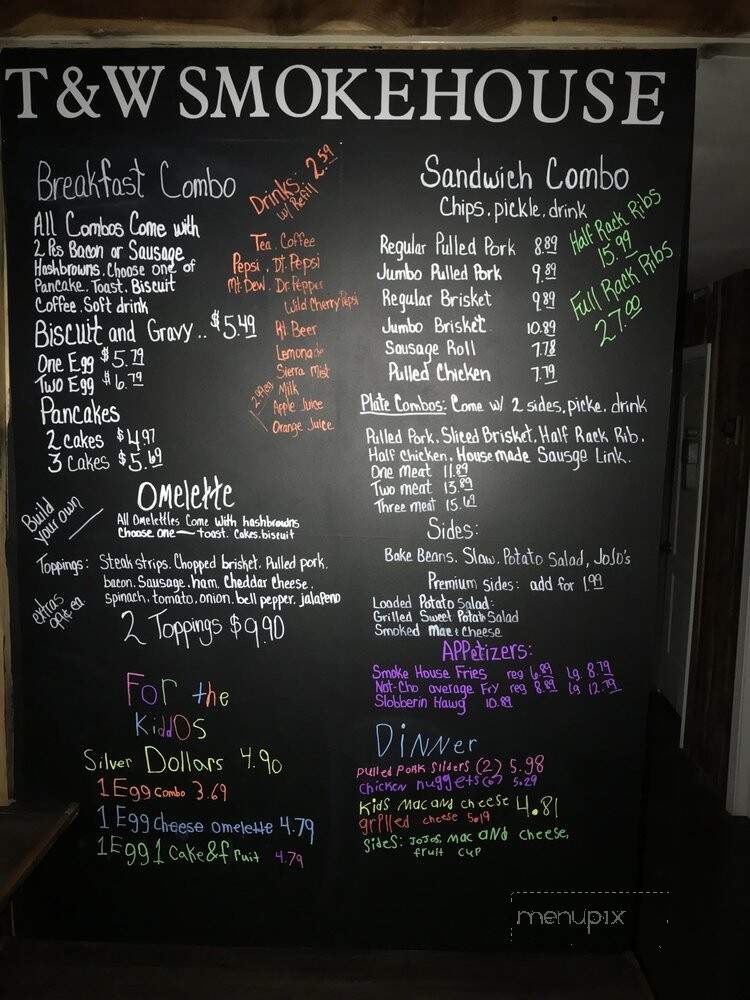 T&W SMOKEHOUSE
Breakfast Combo
All Combos Come with
2 Pcs Bacon or Sausage
Hashbrowns. Choose one of
Pancake. Toast. Biscuit
Coffee. Soft drink
Biscuit and Gravy.. $5.49
One Egg $5.79
Two Egg $6.79
Pancakes
2 cakes $4.97
3 Cakes $5.69
Drinks: 2.59
w/ Refill
Tea. Coffee
Pepsi. Dt. Pepsi
Mt. Dew. Dr. Pepper
Wild Cherry Pepsi
Rt. Beer
Lemonade
Sierra Mist
Milk
Apple Juice
Orange Juice
Omelette
Build
your own
All Omelettles Come with hashbrowns
Choose one — toast. Cakes. biscuit
Toppings: Steak strips. Chopped brisket. Pulled pork.
bacon. Sausage. ham. Cheddar Cheese.
spinach. tomato. onion. bell pepper. jalapeno
extras
99¢ ea
2 Toppings $9.90
For the
KiddOs
Silver Dollars 4.90
1 Egg Combo 3.69
1 Egg Cheese omelette 4.79
1 Egg 1 Cake & fruit 4.79
Sandwich Combo
Chips. pickle. drink
Regular Pulled Pork 8.89
Jumbo Pulled Pork 9.89
Regular Brisket 9.89
Jumbo Brisket 10.89
Sausage Roll 7.78
Pulled Chicken 7.79
Half Rack Ribs
15.99
Full Rack Ribs
27.00
Plate Combos: Come w/ 2 sides, picke. drink
Pulled Pork. Sliced Brisket. Half Rack Rib.
Half Chicken. House made Sausge Link.
One meat 11.89
Two meat 13.89
Three meat 15.69
Sides:
Bake Beans. Slaw. Potato Salad, JoJo's
Premium sides: add for 1.99
Loaded Potato Salad:
Grilled Sweet Potato Salad
Smoked Mac & Cheese
APPetizers:
Smoke House Fries reg 6.89 Lg 8.79
Not-Cho average Fry reg 8.89 Lg 12.79
Slobberin Hawg 10.89
Dinner
Pulled Pork Sliders (2) 5.98
Chicken nuggets (6) 5.29
Kids Mac and cheese 4.81
grilled cheese 5.19
Sides: JoJos, Mac and cheese,
fruit cup
menupix